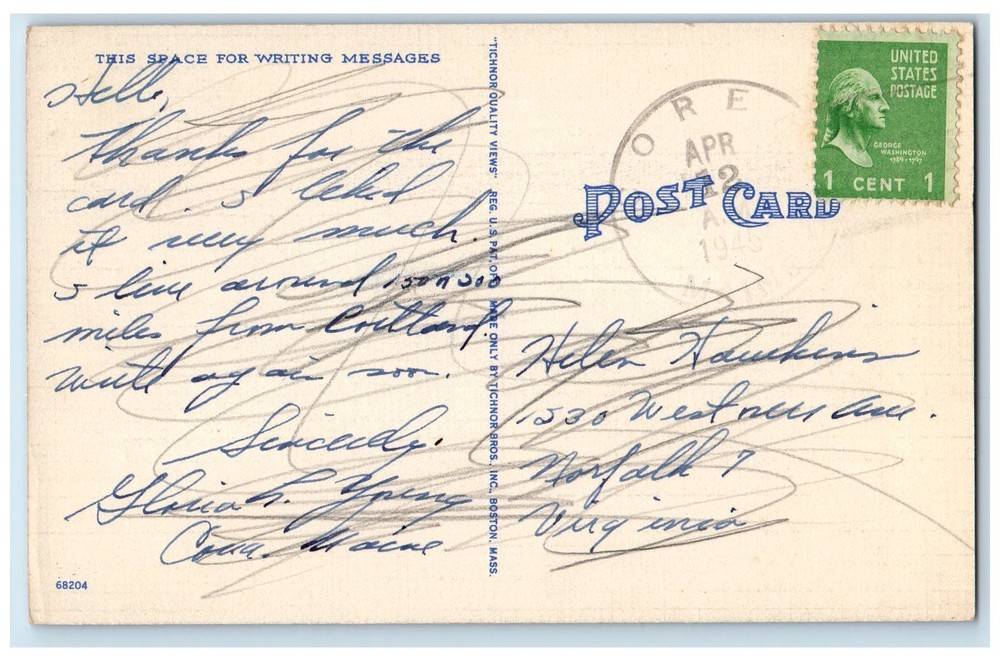 THIS SPACE FOR WRITING MESSAGES
Hello,
Thanks for the
card. I liked
it very much.
I live around 150 or 200
miles from Portland.
Write again soon.
Sincerely,
Gloria L. Young
Maine
68204
"TICHNOR QUALITY VIEWS" REG. U. S. PAT. OFF. MADE ONLY BY TICHNOR BROS. INC., BOSTON, MASS.
ORE
APR
12
A.
194
POST CARD
UNITED
STATES
POSTAGE
GEORGE
WASHINGTON
1789-1797
1 CENT 1
Helen Hawkins
1530 Westover Ave.
Norfolk 7
Virginia